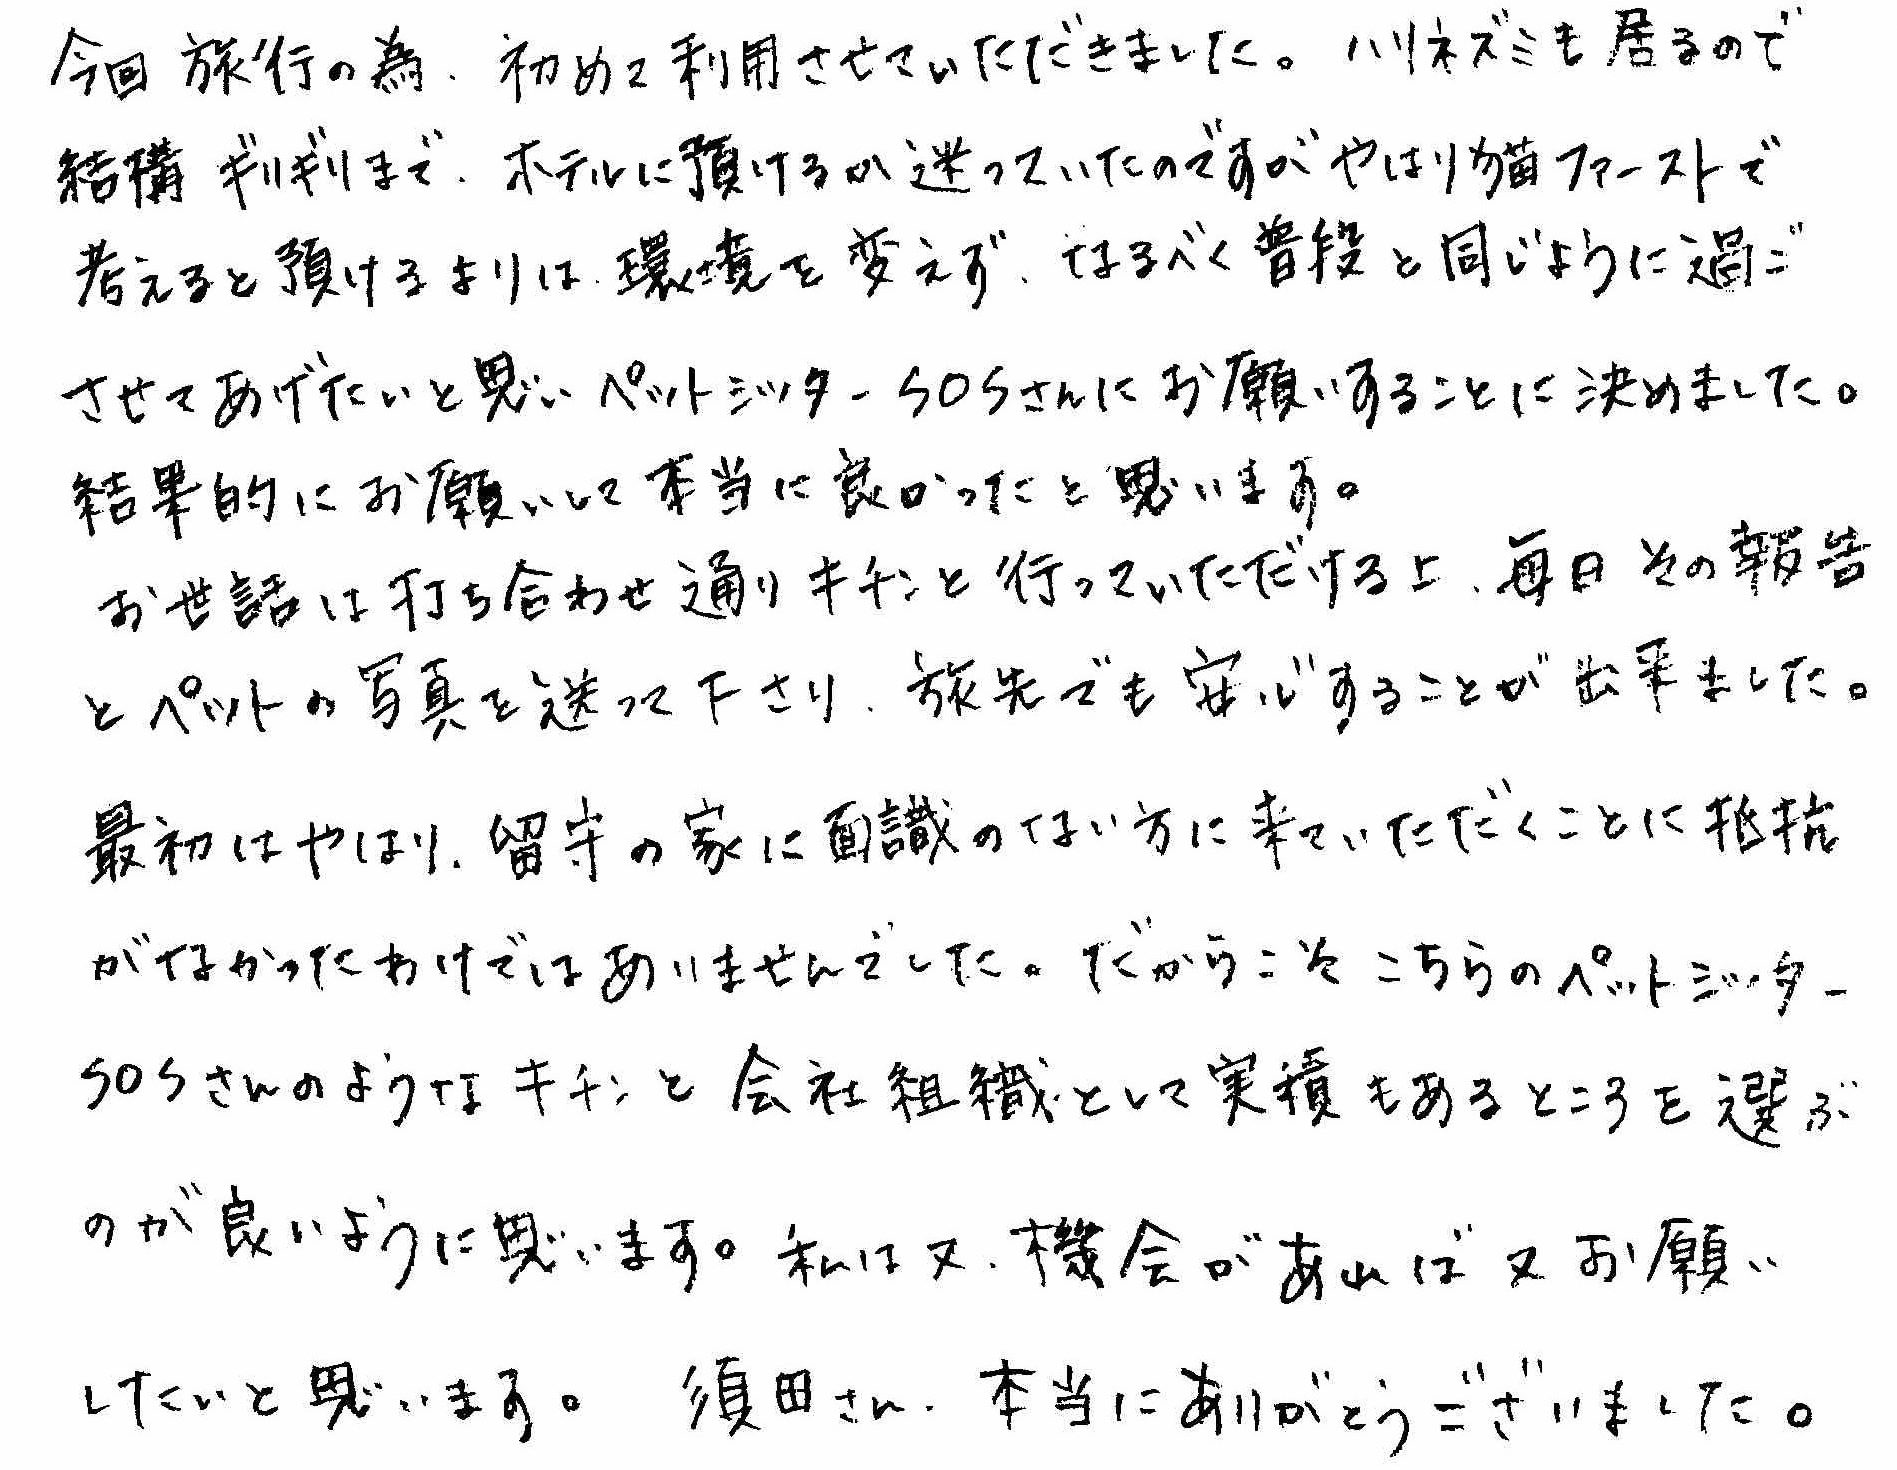 今回旅行の為、初めて利用させていただきました。ハリネズミも居るので
結構ギリギリまで、ホテルに預けるか迷っていたのですがやはり猫ファーストで
考えると預けるよりは、環境を変えず、なるべく普段と同じように過ご
させてあげたいと思いペットシッターSOSさんにお願いすることに決めました。
結果的にお願いして本当に良かったと思います。
お世話は打ち合わせ通りキチンと行っていただける上、毎日その報告
とペットの写真を送って下さり、旅先でも安心することが出来ました。
最初はやはり、留守の家に面識のない方に来ていただくことに抵抗
がなかったわけではありませんでした。だからこそこちらのペットシッター
SOSさんのようなキチンと会社組織として実績もあるところを選ぶ
のが良いように思います。私は又、機会があれば又お願い
したいと思います。 須田さん、本当にありがとうございました。